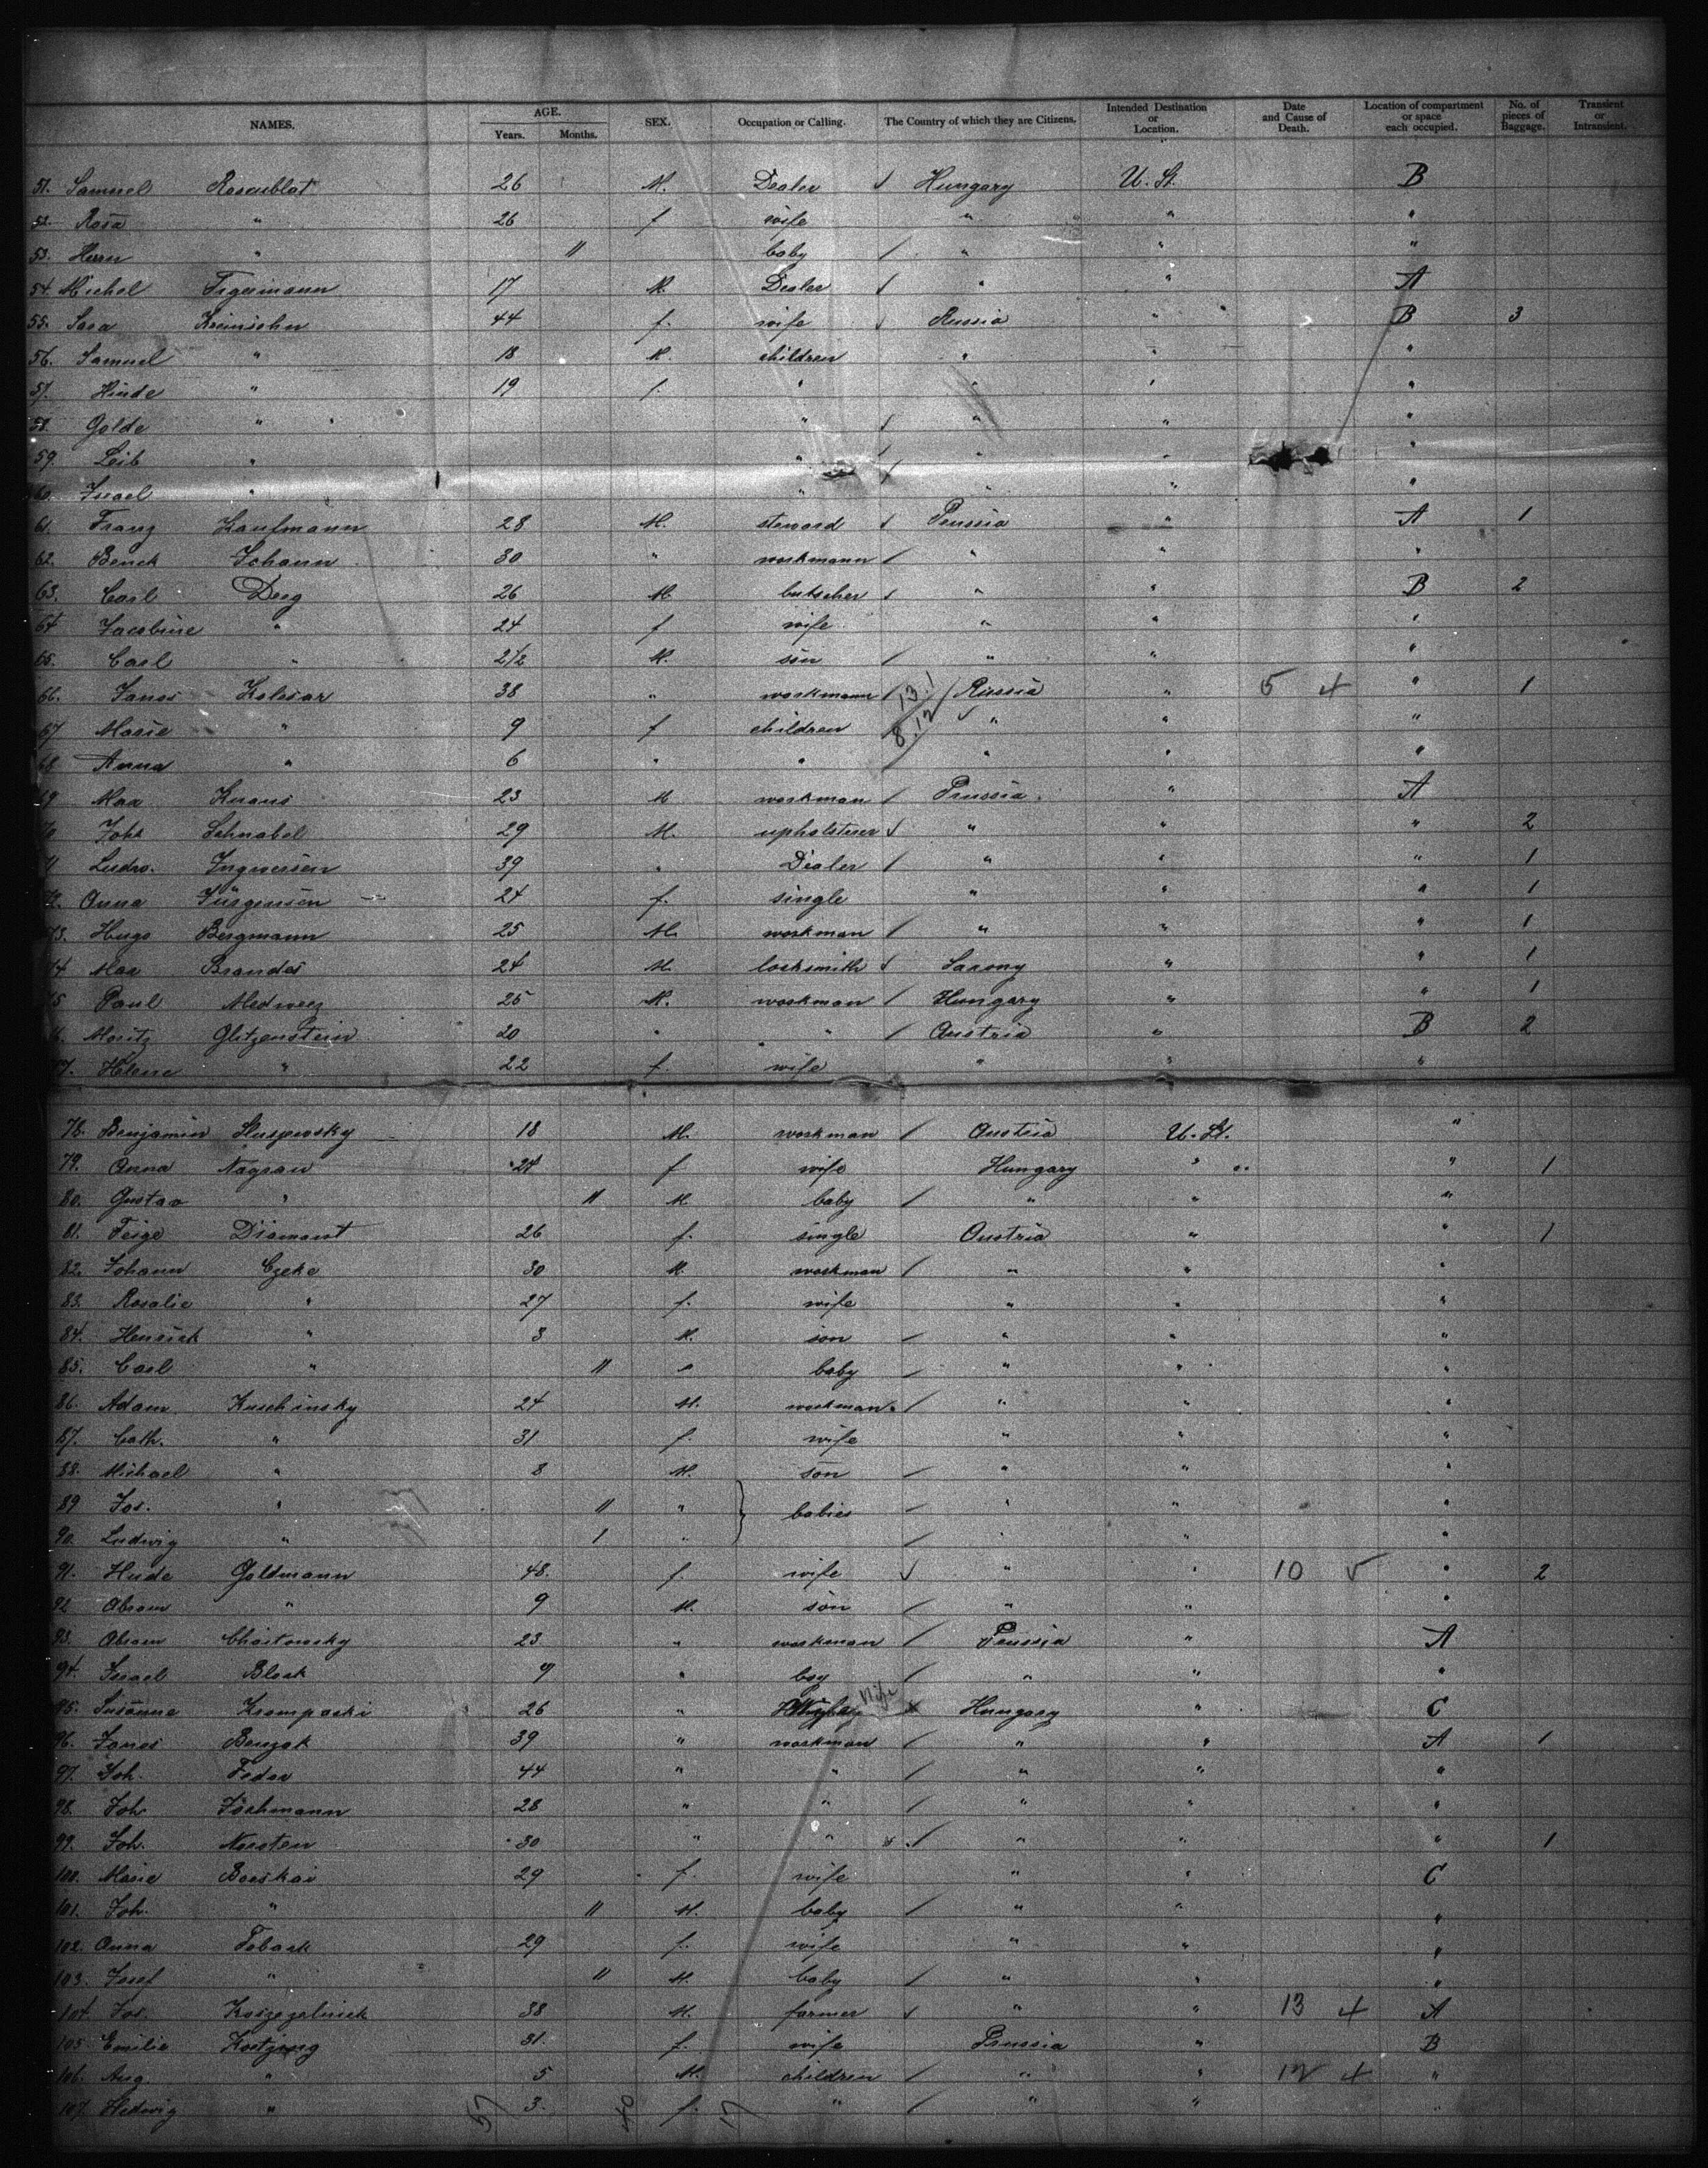 NAMES. AGE. Years. Months. SEX. Occupation or Calling. The Country of which they are Citizens. Intended Destination or Location. Date and Cause of Death. Location of compartment or space each occupied. No. of pieces of Baggage. Transient or Intransient.
51. Samuel Rosenblat 26 M. Dealer Hungary U. St. B
52. Rosa " 26 f wife " " "
53. Herm " 11 baby " " "
54. Michel 17 M. Dealer " " A
55. Sara 44 f. wife Russia " B 3
56. Samuel " 18 M. children " " "
57. Hinde " 19 f. " " " "
58. Golde " " " " "
59. Leib " " " " "
60. Israel " " " " "
61. Franz Kaufmann 28 M. steward Prussia " A 1
62. Benek Johann 30 " workmann " " "
63. Carl Deeg 26 M butscher " " B 2
64 Jacobine " 24 f wife " " "
65. Carl " 2 1/2 M. son " " "
66. Janos Kolesar 38 " workmann 13.1 Russia " 5 4 " 1
67 Marie " 9 f children 8.12 " " "
68 Anna " 6 " " " " "
69 Max Knaus 23 M workman Prussia " A
70 Joh. Schnabel 29 M. upholsterer " " " 2
71 Ludw. Ingwersen 39 " Dealer " " " 1
72. Anna Jürgensen 24 f. single " " " 1
73. Hugo Bergmann 25 M. workman " " " 1
74 Max Brandes 24 M. locksmith Saxony " " 1
75 Paul Medwecz 25 M. workman Hungary " " 1
76. Moritz Glitzenstein 20 " " Austria " B 2
77. Helene " 22 f. wife " " "
78. Benjamin 18 M. workman Austria U. St. "
79. Anna Nagrau 24 f wife Hungary " " 1
80. Gustav " 11 M. baby " " "
81. Feige Diamant 26 f. single Austria " " 1
82. Johann Czeke 30 M. workman " " "
83. Rosalie " 27 f. wife " " "
84. Henrick " 3 M. son " " "
85. Carl " 11 " baby " " "
86. Adam Kuschinsky 24 M. workman. " " "
87. Cath. " 31 f. wife " " "
88. Michael " 8 M. son " " "
89 Jos. " 11 " babies " " "
90. Ludwig " 1 " " " "
91. Hude Goldmann 48. f. wife " " 10 5 " 2
92 Abram " 9 M. son " " "
93. Abram 23 " workman Prussia " A
94. Israel Block 9 " boy " " "
95. Susanne Krompaski 26 " Wife Hungary " C
96. Janos Benzak 39 " workman " " A 1
97. Joh. Fedor 44 " " " " "
98. Joh. 28 " " " " "
99. Joh. 30 " " " " " 1
100. Marie Boeskai 29 f. wife " " C
101. Joh. " 11 M. baby " " "
102. Anna Toback 29 f. wife " " "
103. Josef " 11 M. baby " " "
104. Jos. 38 M. farmer " " 13 4 A
105 Emilie 31. f. wife Prussia " B
106. Aug. " 5 M. children " " 12 4 "
107. Hedwig " 3. f. " " " "
57 40 17